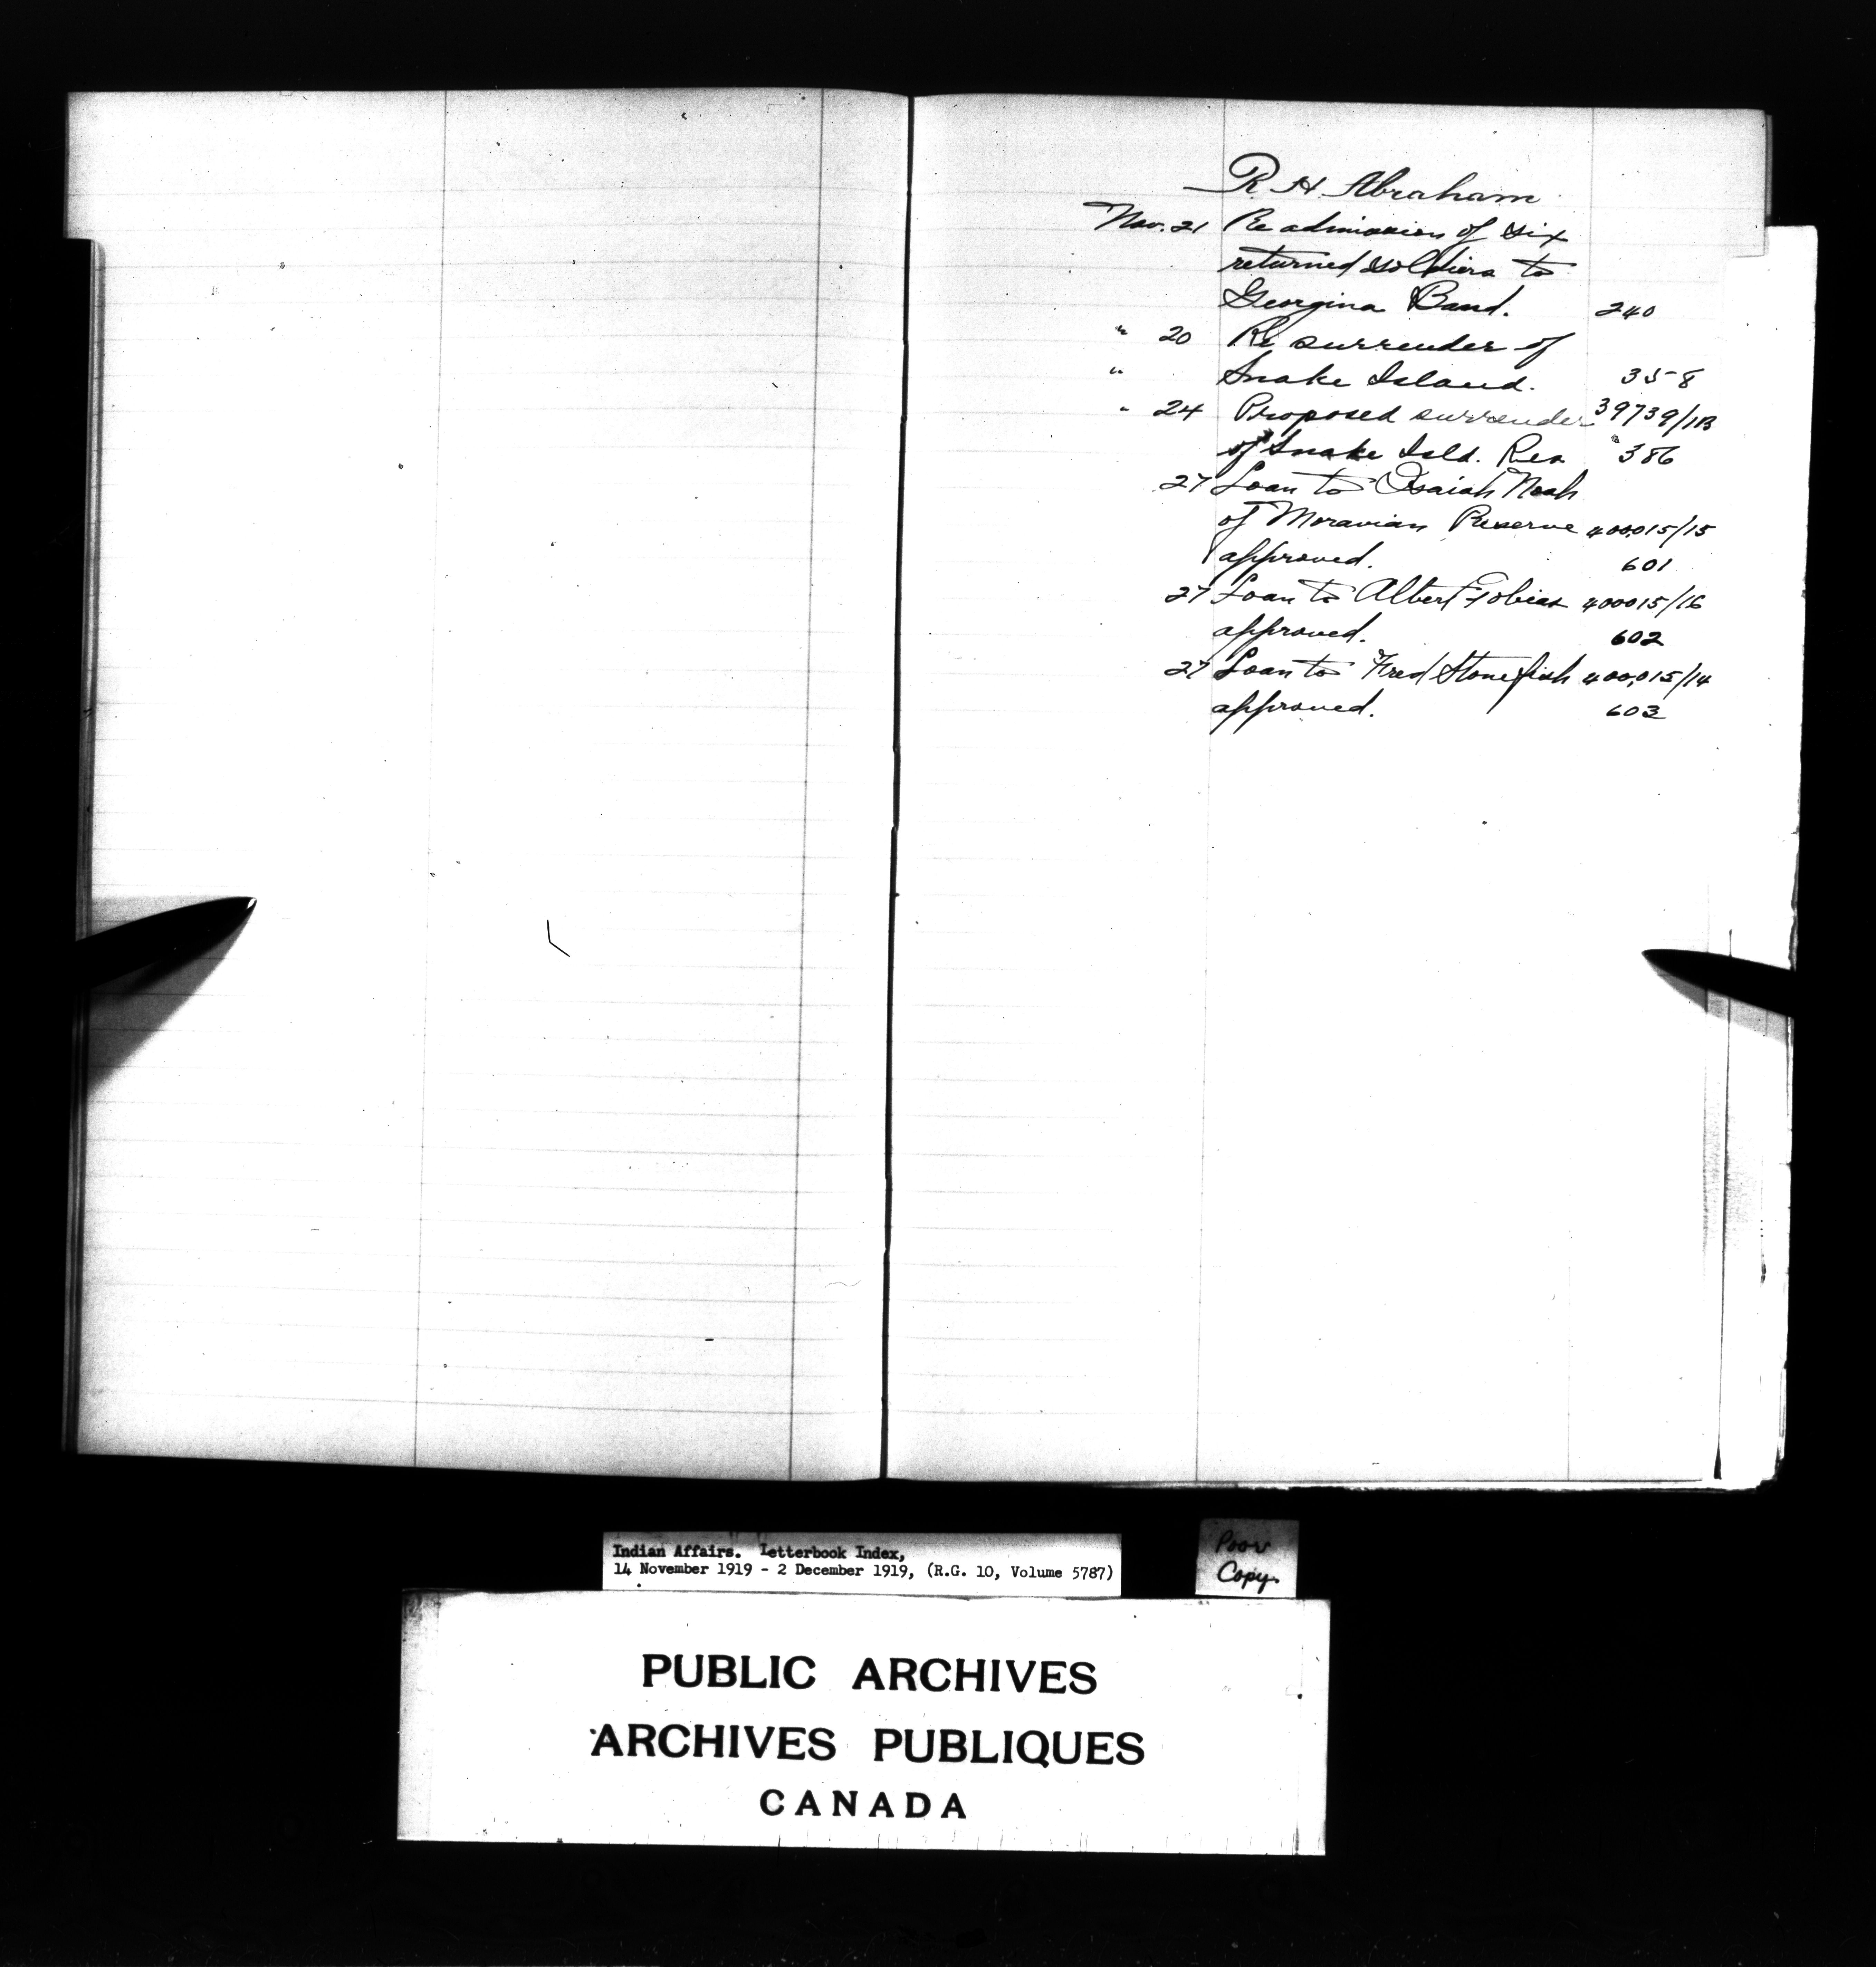 R H Abraham
Nov. 21 Re admission of six
returned soldiers to
Georgina Band. 240
" 20 Re surrender of
" Snake Island. 358
" 24 Proposed surrender 39739/1B
of Snake Isld. Res 386
27 Loan to Isaiah Noah
of Moravian Reserve 400,015/15
approved. 601
27 Loan to Albert Tobias 400015/16
approved. 602
27 Loan to Fred Stonefish 400,015/14
approved. 603
Indian Affairs. Letterbook Index,
14 November 1919 - 2 December 1919, (R.G. 10, Volume 5787)
Poor
Copy.
PUBLIC ARCHIVES
ARCHIVES PUBLIQUES
CANADA